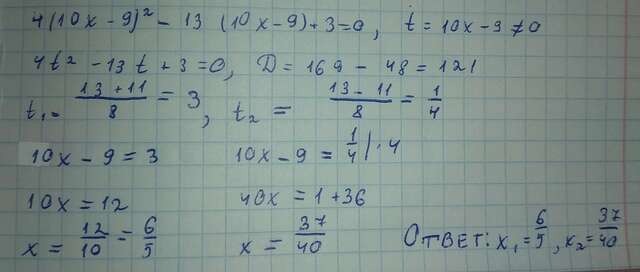 4(10x-9)² - 13 (10x-9)+3=0, t=10x-9≠0
4t² -13t+3=0, D=169-48=121
t₁= (13+11)/8 = 3, t₂ = (13-11)/8 = 1/4
10x-9=3 10x-9=1/4 |·4
10x=12 40x=1+36
x= 12/10 = 6/5 x= 37/40 Ответ: x₁=6/5, x₂=37/40